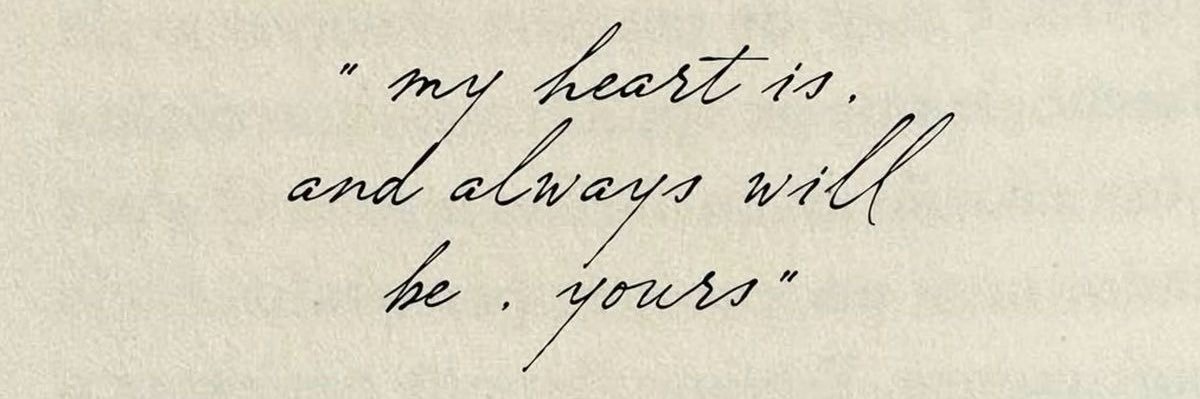 " my heart is .
and always will
be . yours "